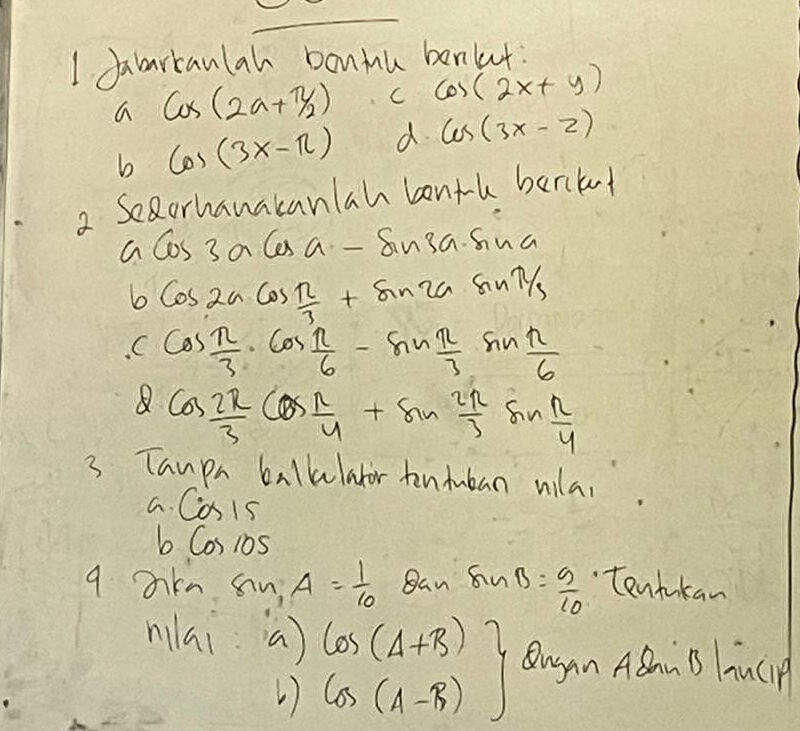 1 Jabarkanlah bentuk berikut:
a Cos (2a + π/2) . c cos(2x + y)
b Cos (3x - π) d. Cos (3x - z)
2 Sederhanakanlah bentuk berikut
a Cos 3a Cos a - Sin 3a . Sin a
b Cos 2a Cos π/3 + Sin 2a Sin π/3
.c Cos π/3 . Cos π/6 - Sin π/3 Sin π/6
d Cos 2π/3 Cos π/4 + Sin 2π/3 Sin π/4
3 Tanpa kalkulator tentukan nilai
a. Cos 15
b Cos 105
4 Jika sin A = 1/10 dan sin B = 9/10 . Tentukan
nilai : a) Cos (A+B) } dengan A dan B lancip
b) Cos (A-B)